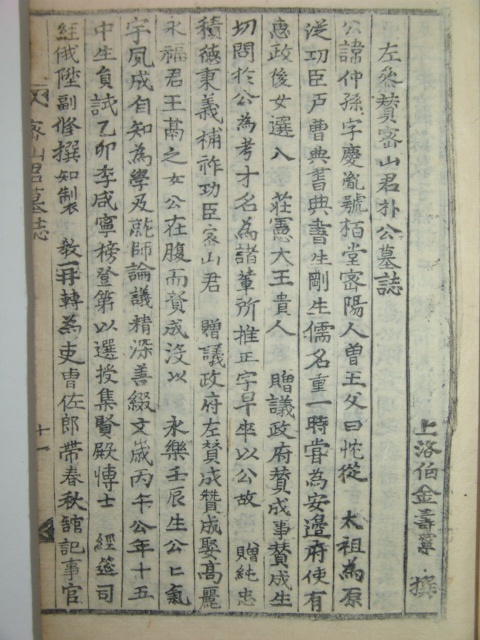 左叅賛密山君朴公墓誌
上洛伯金壽寧 撰
公諱仲孫字慶胤號栢堂密陽人曽王父曰忱從 太祖為原
從功臣户曹典書典書生剛生儒名重一時嘗為安邊府使有
惠政後女選入 莊憲大王貴人 贈議政府賛成事賛成生
切問於公為考才名為諸軰所推正字早卒以公故 贈純忠
積德秉義補祚功臣密山君 贈議政府左賛成賛成娶髙麗
永福君王鬲之女公在腹而賛成沒以 永樂壬辰生公公氣
字夙成自知為學及就師論議精深善綴文歲丙午公年十五
中生員試乙卯李咸寧榜登第以選授集賢殿慱士 經筵司
經俄陞副修撰知製 敎再轉為吏曺佐郎帶春秋館記事官
密山君墓誌
十一